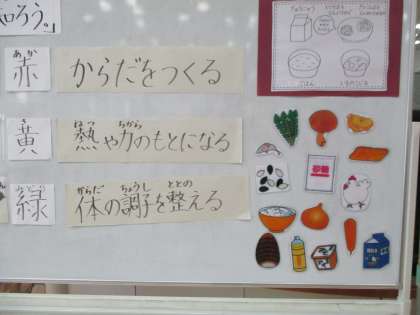 知ろう。
あか
赤
からだをつくる
き
黄
ねつ ちから
熱や力のもとになる
みどり
緑
からだ ちょうし ととの
体の調子を整える
ぎゅうにゅう
ごはん
砂糖